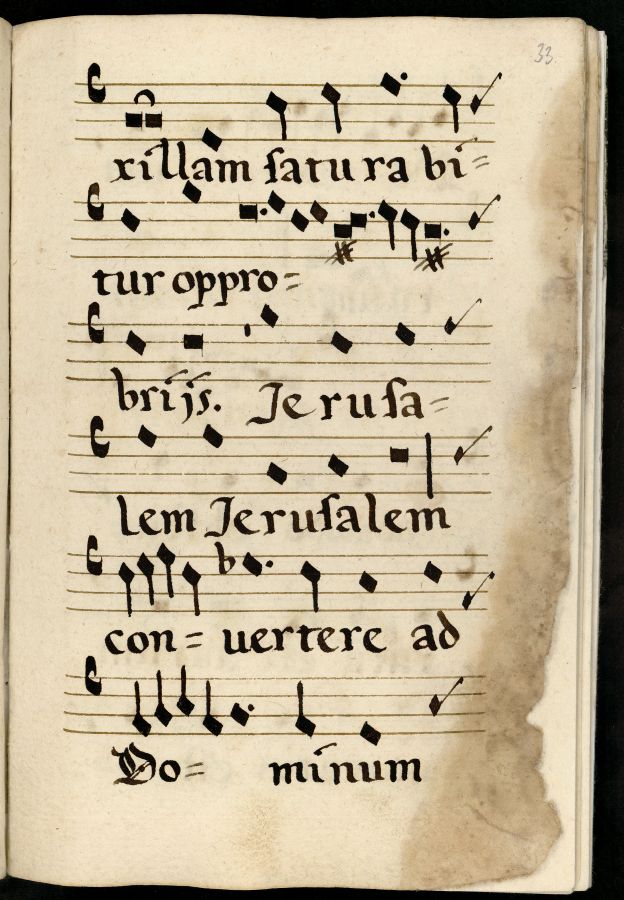 33.
xillam satura bi=
tur oppro=
brijs. Jerusa=
lem Jerusalem
con= uertere ad
Do= minum